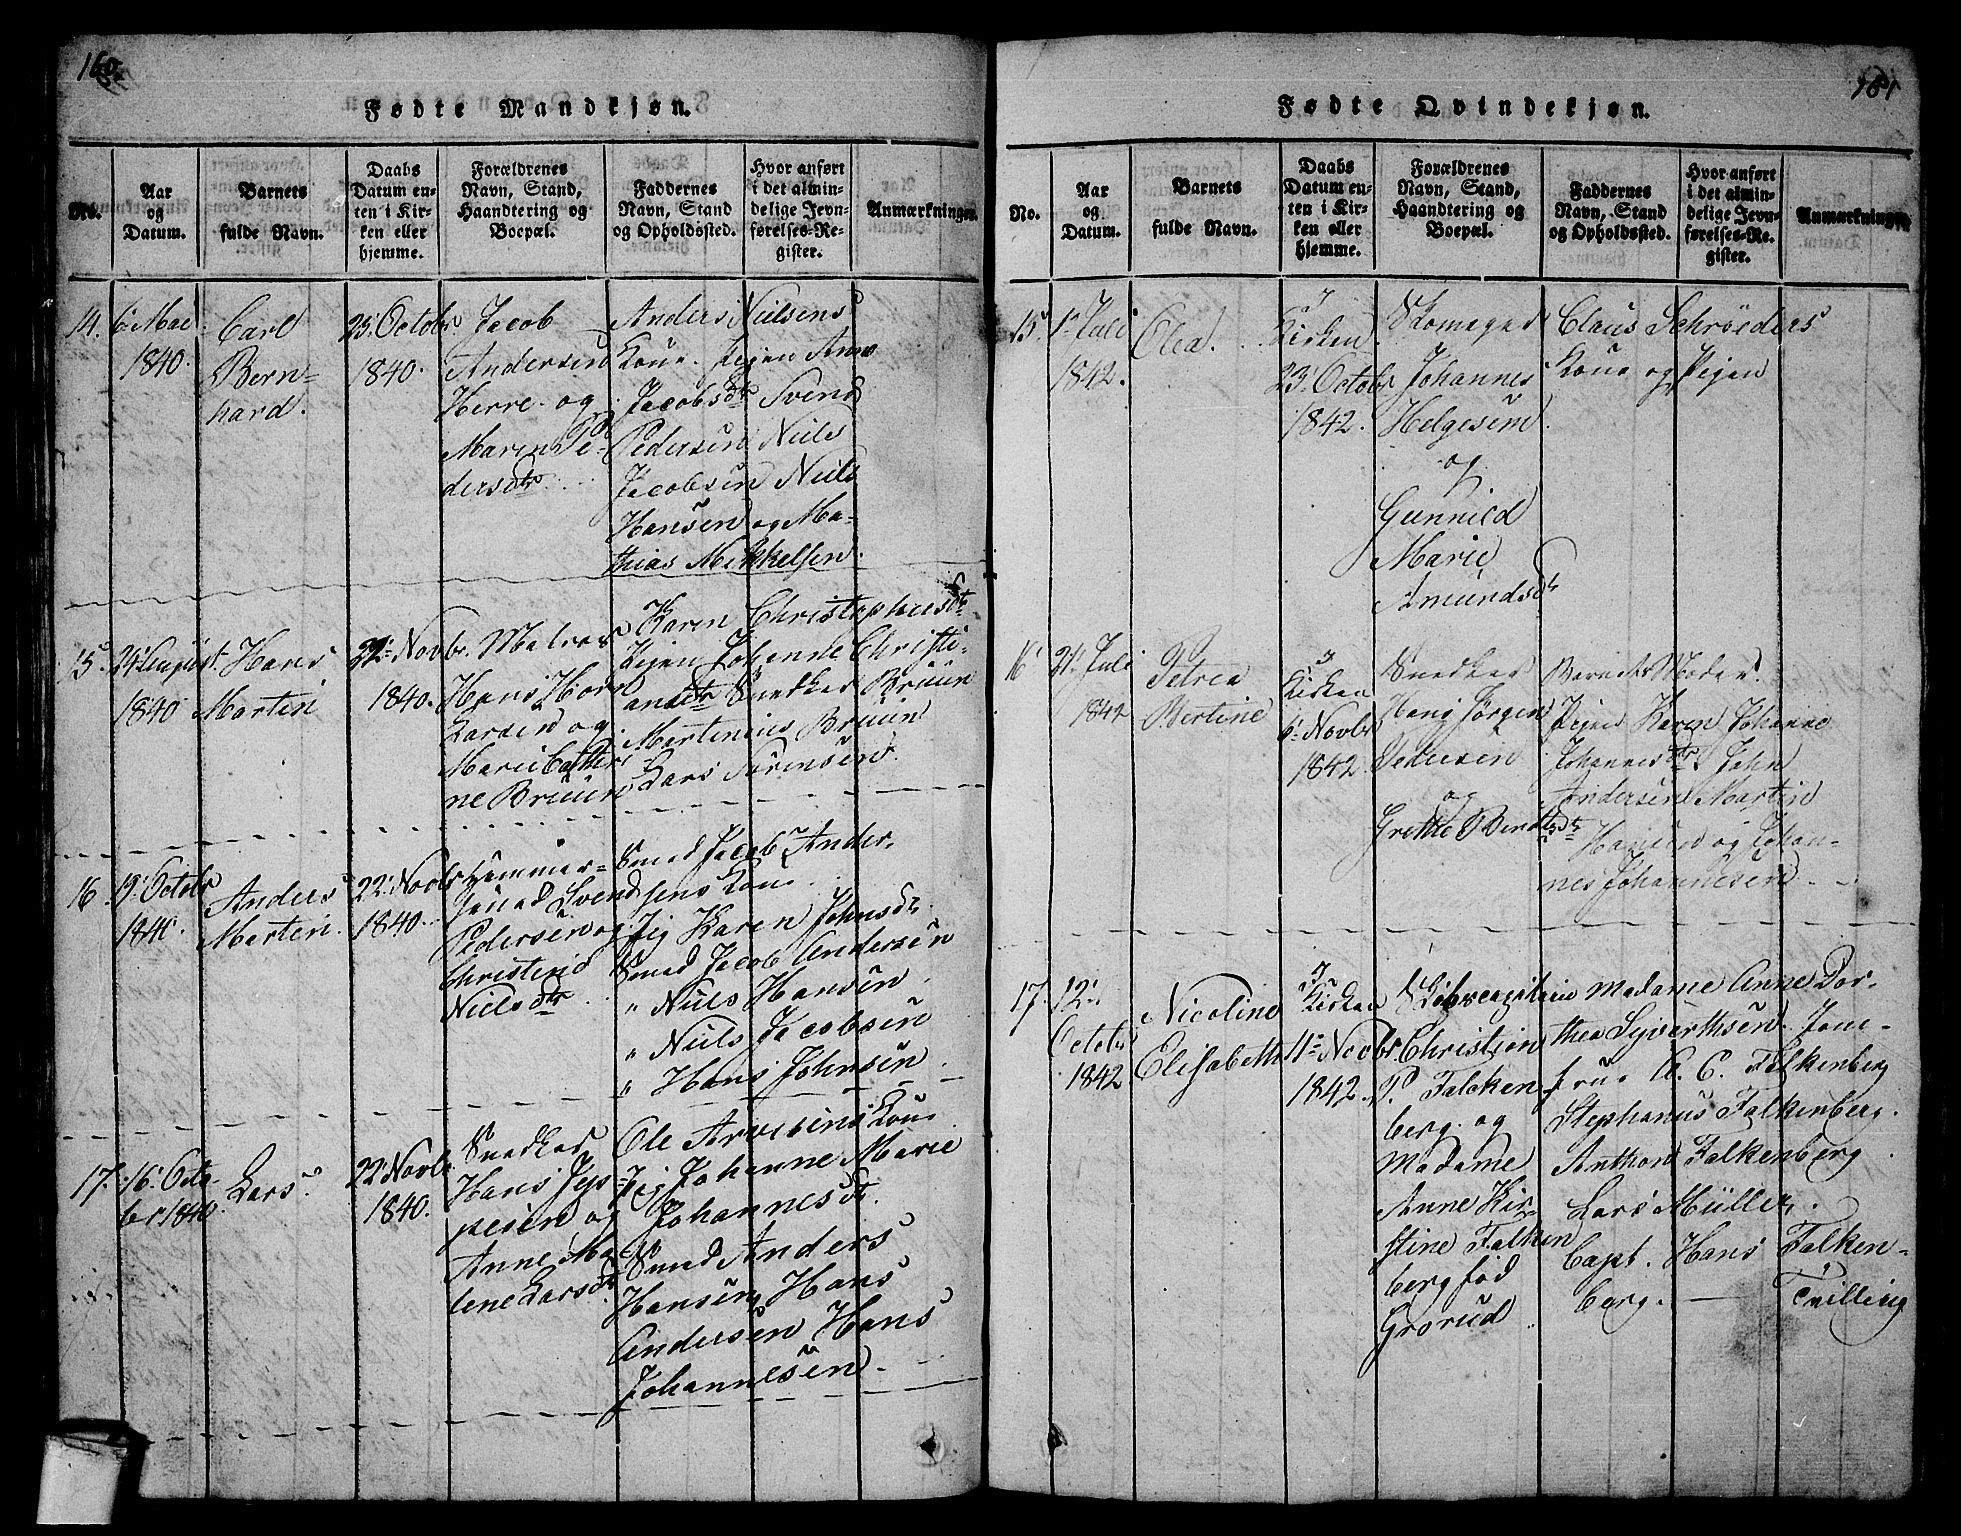 160.
Fødte Mandkjøn.
No.
Aar
og
Datum.
Barnets
fulde Navn.
Daabs
Datum en-
ten i Kir-
ken eller
hjemme.
Forældrenes
Navn, Stand,
Haandtering og
Boepæl.
Faddernes
Navn, Stand
og Opholdssted.
Hvor anført
i det almin-
delige Jevn-
førelses-Re-
gister.
Anmærkninger.
14.
6 Mai
1840.
Carl
Bern=
hard.
25. Octobr
1840.
Jacob
Andersen
Herre og
Maren Pe-
dersdtr
Anders Nielsens
Kone. Pigen Anne
Jacobsdtr Svend
Pedersen Niels
Jacobsen Niels
Hansen og Ma-
thias Mikkelsen.
15.
24 August
1840
Hans
Martin
22. Novbr.
1840.
Matros
Hans
Larsen og
Marie Cathri
ne Bruun
Karen Christophersdtr
Pigen Johanne Christi-
ansdtr Snedker Bruun
Martinius Bruun
Lars Sørensen.
16.
19. Octobr
1840.
Anders
Martin.
22. Novbr
1840.
Hammer=
smed Svend
Pedersen og
Christine
Nielsdtr
Smed Jacob Ander-
sens Kone
Pig Karen Johnsdtr.
Smed Jacob Andersen
" Niels Hansen
" Niels Jacobsen
" Hans Johnsen
17.
16. Octo-
ber 1840.
Lars.
22 Novbr
1840.
Snedker
Hans Jep-
pesen og
Anne Ma
lene Larsdtr
Ole Arvesens Kone
Pig Johanne Marie
Johannesdtr.
Smed Anders
Hansen Hans
Andersen Hans
Johannesen.
161
Fødte Qvindekjøn.
No.
Aar
og
Datum.
Barnets
fulde Navn.
Daabs
Datum en-
ten i Kir-
ken eller
hjemme.
Forældrenes
Navn, Stand,
Haandtering og
Boepæl.
Faddernes
Navn, Stand
og Opholdssted.
Hvor anført
i det almin-
delige Jevn-
førelses-Re-
gister.
Anmærkninger
15
1. Juli
1842.
Olea.
I
Kirken
23. Octobr
1842.
Skomager
Johannes
Helgesen
og
Gunnild
Marie
Amundsdtr
Claus Schrøeders
Kone og Pigen
16
21. Juli
1842
Petrea
Bertine
I
Kirken
6. Novbr
1842
Snedker
Hans Jørgen
Pedersen
og
Grethe Berndtsdtr
Barnets Moder.
Pigen Karen Johanne
Johannesdtr. John
Andersen Martin
Hansen og Johan-
nes Johannesen
17.
12.
Octobr
1842
Nicoline
Elisabeth
I
Kirken
11. Novbr.
1842.
Skibscapitain
Christian
P. Falcken
berg. og
Madame
Anne Kir-
stine Falken
berg fød
Grorud
Madame Anne Dor-
thea Syverthsen. Jom-
frue A. C. Falkenberg
Stephanus Falkenberg.
Anthon Falkenberg
Lars Müller.
Capt. Hans Falken-
berg.
Tvilling